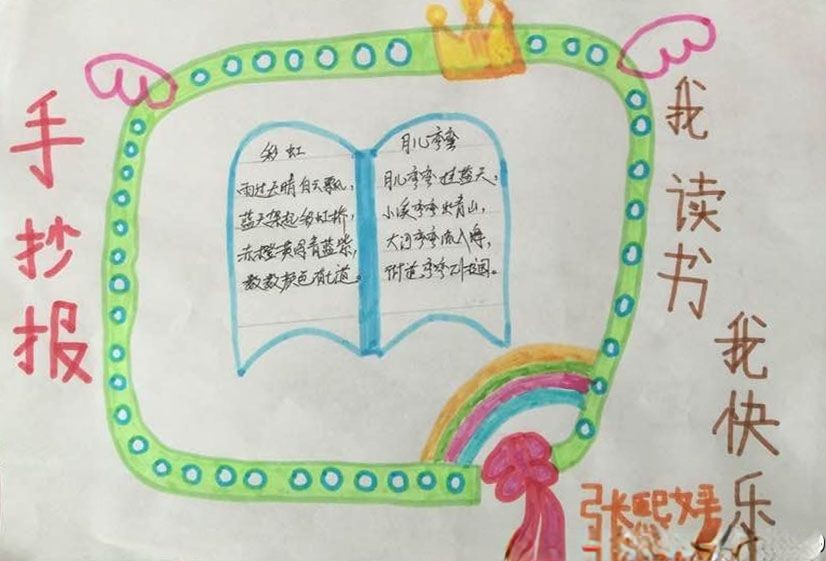 手抄报
彩虹
雨过天晴白云飘，
蓝天架起彩虹桥，
赤橙黄绿青蓝紫，
数数颜色有七道。
月儿弯弯
月儿弯弯挂蓝天，
小溪弯弯出青山，
大河弯弯流入海，
街道弯弯
我读书
我快乐
张熙妤